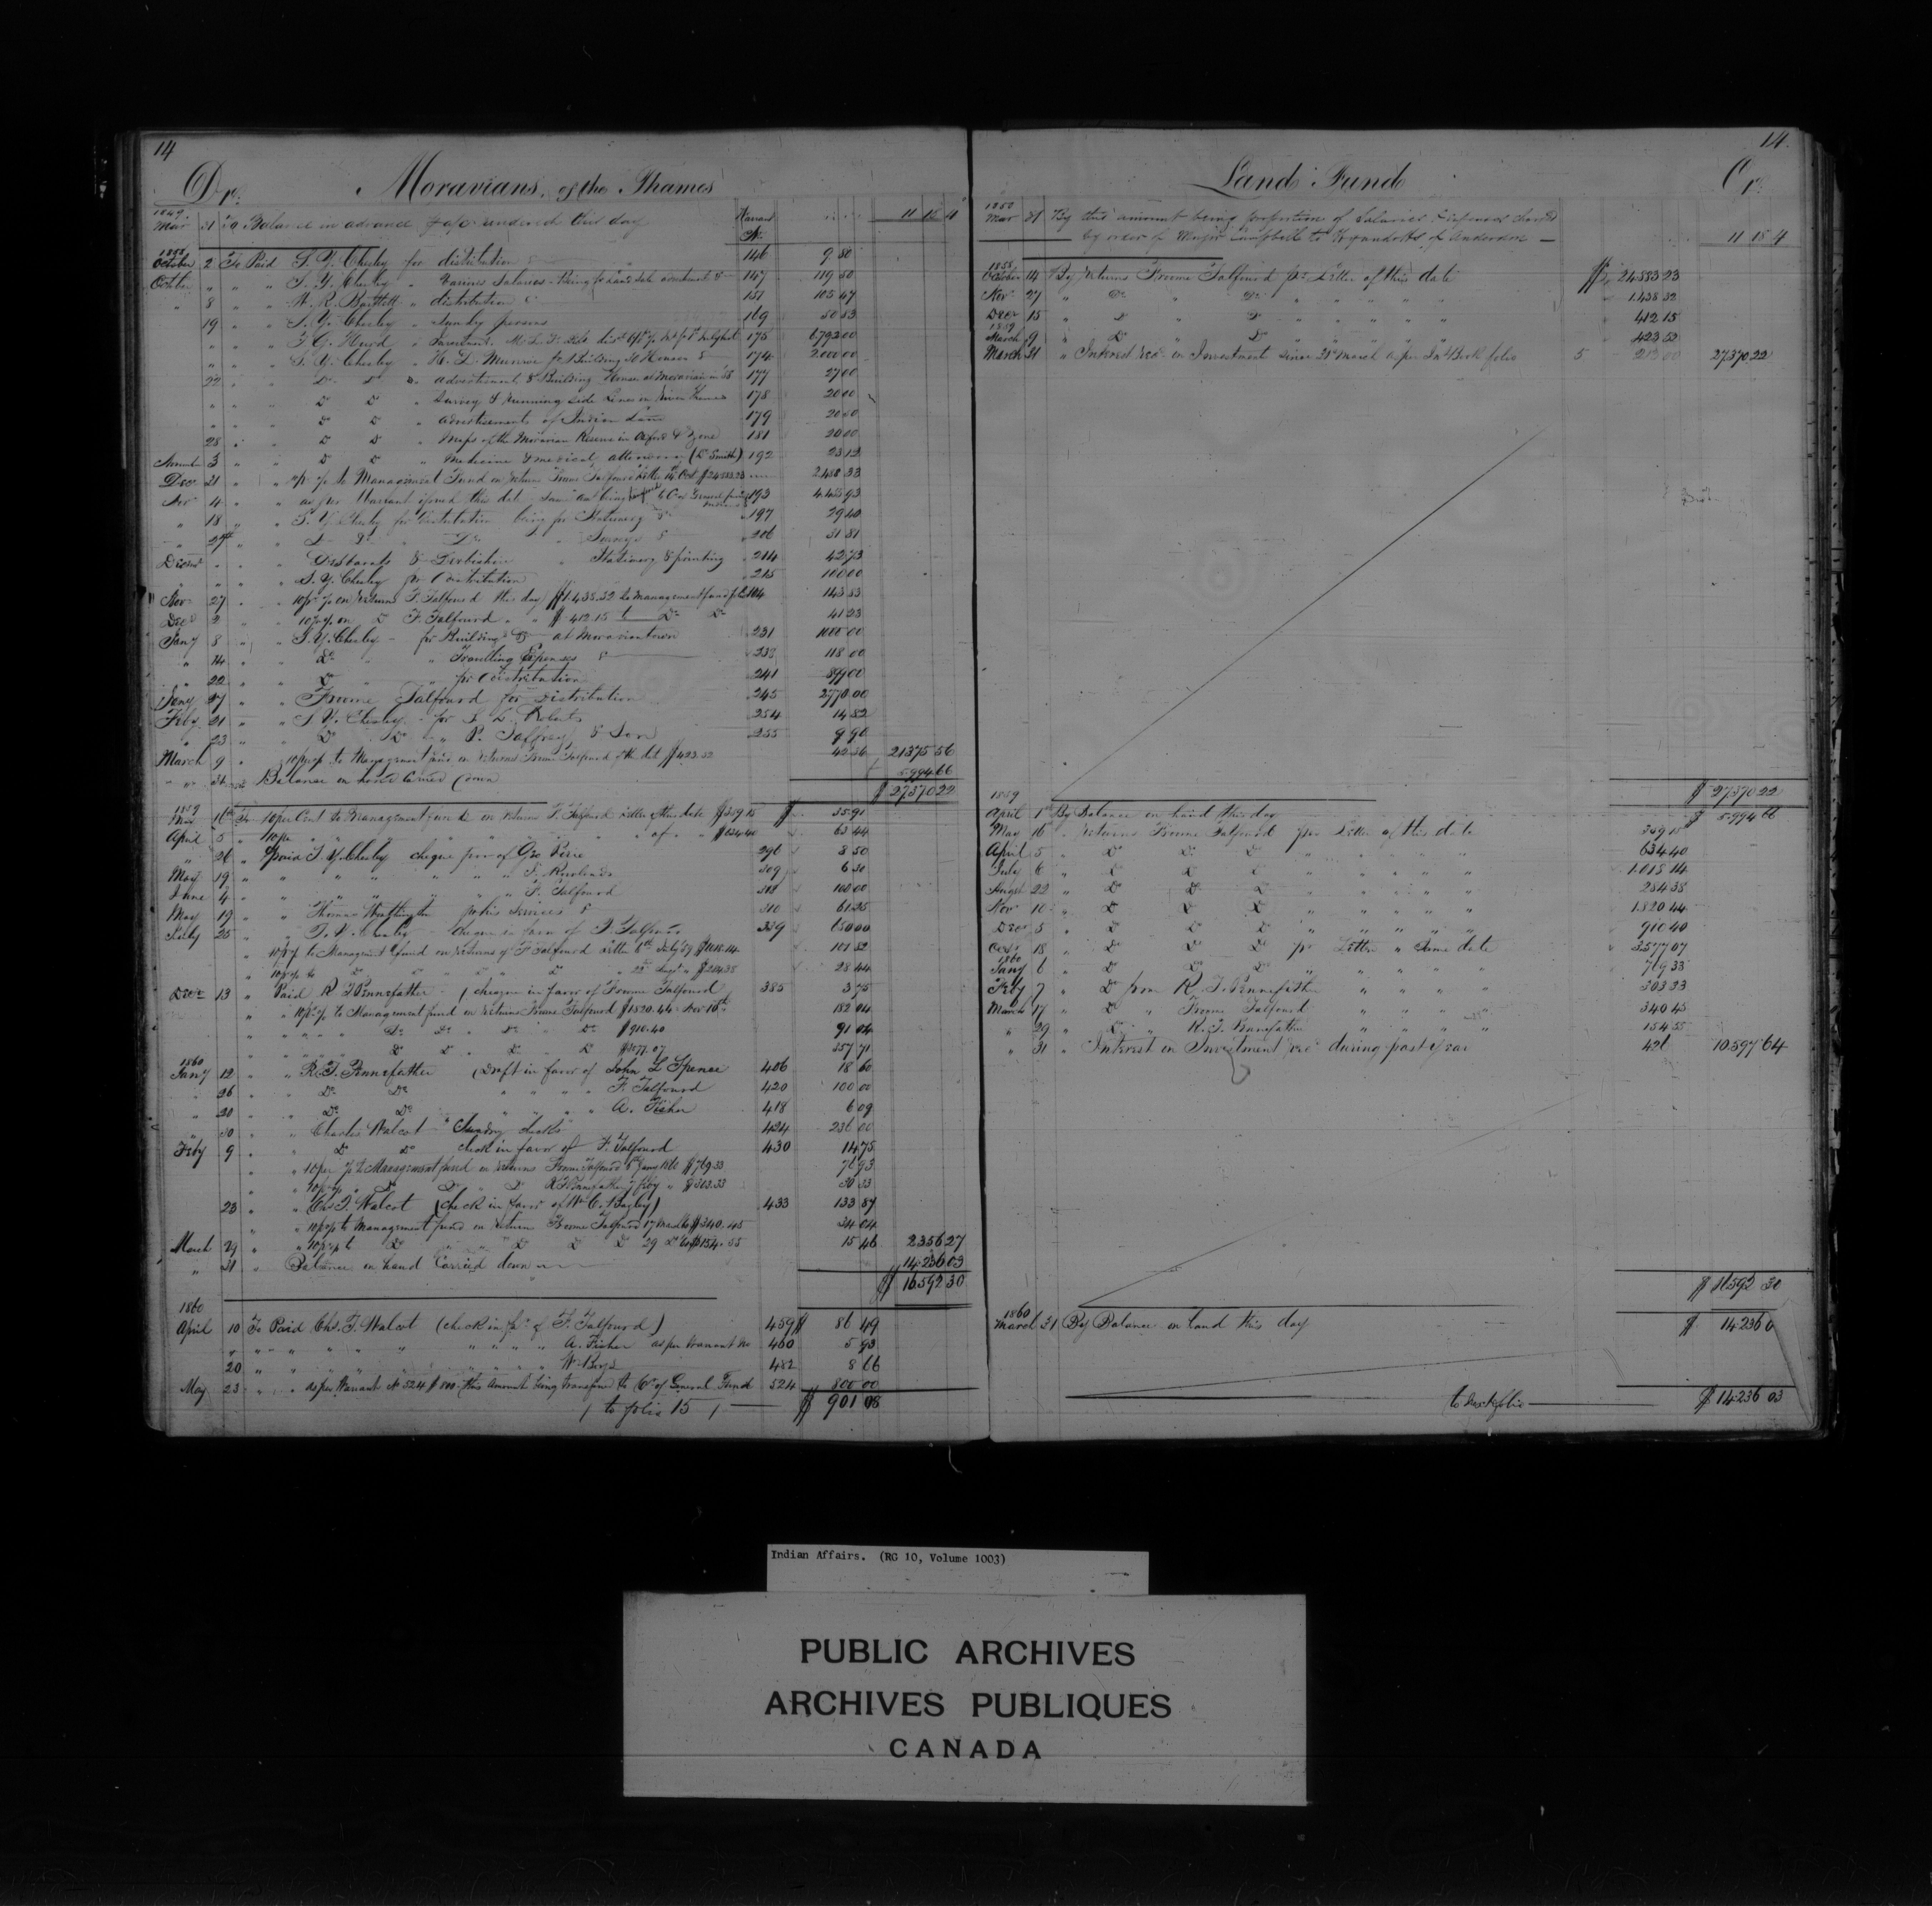 14
Dr. Moravians of the Thames
1849 Mar 31 To Balance in advance p a/c rendered this day Warrant No. 11 18 4
1858
October 2 To Paid S. Y. Chesley for distribution 146 9 80
October " " " S. Y. Chesley " Various Salaries 147 119 50
" 8 " " W. R. Bartlett " distribution & 151 105 47
19 " " S. Y. Chesley " Sundry persons 169 50 53
" " " T. G. Hurd " Investment 175 6792 00
" " " S. Y. Chesley " H. D. Munroe for Building 20 Houses & 174 2000 00
22 " " Do Do " advertisement & Building House at Moravian 177 27 00
" " " Do Do " Survey & running side lines on River Thames 178 20 00
" " " Do Do " advertisements of Indian Land 179 20 00
28 " " Do Do " Maps of the Moravian Reserve in Orford & Zone 181 20 00
November 3 " " Do Do " Medicine & medical attendance (Dr Smith) 192 23 12
Dec 21 " " to Management Fund on returns Froome Talfourd Letter 14 Oct $24883.23 2488 33
Nov 4 " " as per Warrant issued this date 193
" 18 " " S. Y. Chesley for distribution being for Stationery & 197 29 40
" 27 " " Do Do Do " Surveys & 206 31 81
Desbarats & Derbishire Stationery & printing 214 42 73
" " " S. Y. Chesley for distribution 215 100 00
Nov 27 " " 10 pr % on returns F. Talfourd this day $1438.32 to management fund 143 83
Dec 2 " " 10 p % on Do F. Talfourd " " $412.15 to Do Do 41 23
Jany 8 " " S. Y. Chesley for Buildings & at Moraviantown 231 1000 00
" 14 " " Do " " Travelling Expenses & 118 00
" 22 " " Do " for distribution 241 899 00
Jany 27 " " Froome Talfourd for Distribution 245 2770 00
Feby 21 " " S. Y. Chesley for S. L. Roberts 254 14 82
" 23 " " Do Do " P. Palfrey & Son 255 9 90
March 9 " 10 p % to Management fund on returns Froome Talfourd $423.52 42 36 21375 56
" " 31 Balance on hand Carried down 5994 66
$ 27370 22
1859
16th To 10 per Cent to Management fund on returns F. Talfourd letter of this date $359.15 $ 35 91
April 5 " 10 pr " " " " " " " of " " $634.40 63 44
" 26 " paid S. Y. Chesley cheque favor of Geo Pirie 296 8 50
May 19 " " " " " " " 309 6 50
June 4 " " " " " " " F. Talfourd 100 00
May 19 " " Thomas Worthington for his Services & 310 61 25
July 25 " " S. Y. Chesley cheque in favor of F. Talfourd 339
" 10 p % to Management fund on returns of F Talfourd letter 6th July 59 $1018.14
" 10 p % to Do " " Do " Do " 22 Augt " $284.38 28 44
Decr 13 " Paid R. T. Pennefather (cheque in favor of Froome Talfourd 385 3 75
" " 10 p % to Management fund on returns Froome Talfourd $1820.44 Nov 10th 182 04
" " " " " Do Do " Do " Do $910.40 91 04
" " " " " Do Do " Do " Do $3577.07 357 71
1860
Jany 12 " " R. T. Pennefather (Draft in favor of John L Spence 406 18 60
" 26 " " Do Do " " " " F. Talfourd 420 100 00
" 20 " " Do Do " " " " A. Fisher 418 6 09
" 30 " " Charles Walcot " Sundry checks 424 236 00
Feby 9 " " Do Do check in favor of F. Talfourd 430 14 75
" " 10 per % to Management fund on returns Froome Talfourd 6th Jany 1860 $769.33 76 93
" " 10 p % " Do Do " Do R T Pennefather 7 feby " $303.33 30 33
23 " " Chs T. Walcot (check in favor of Wm C. Bagley) 433 133 87
" " 10 p % to Management fund on return Froome Talfourd 17 March 60 $340.45 34 04
March 29 " " 10 p % to Do " " Do Do Do 29 Do 60 $154.55 15 46 2356 27
" 31 " Balance on hand Carried down 14236 03
$ 16592 30
1860
April 10 To Paid Chs. T. Walcot (check in fr of F. Talfourd) 459 $ 86 49
" " " " " " " " " " A. Fisher as per Warrant No 460 5 93
20 " " " " " " " " Wm Boyd 482 8 66
May 23 " " as per Warrant No 524 $800 (this Amount being transferred to Cr of General Fund 524 800 00
(to folio 15) $ 901 08
14
Land Fund Cr.
1850 Mar 31 By this amount being proportion of Salaries & expenses charged
by order of Major Campbell to Wyandotts of Anderdon 11 18 4
1858
October 14 By returns Froome Talfourd per Letter of this date $ 24883 23
Nov 27 " Do " Do " " " " " 1438 32
Decr 15 " Do " Do " " " " " 412 15
1859
March 9 " Do " Do " " " " " 423 52
March 31 " Interest recd on Investment since 31 March as per Int Book folio 5 213 00 27370 22
1859 $ 27370 22
April 1st By Balance on hand this day $ 5994 66
May 16 " returns Froome Talfourd per Letter of this date 359 15
April 5 " Do Do Do " " " " " 634 40
July 6 " Do Do Do " " " " " 1018 14
Augt 22 " Do Do Do " " " " " 284 38
Nov 10 " Do Do Do " " " " " 1820 44
Decr 5 " Do Do Do " " " " " 910 40
Oct 18 " Do Do Do per Letter " Same date 3577 07
1860
Jany 6 " Do Do Do " " " " 769 33
Feby 7 " Do from R. T. Pennefather " " " " 303 33
March 17 " Do " Froome Talfourd " " " " 340 45
" 29 " Do " R. T. Pennefather " " " " 154 55
" 31 " Interest on Investment recd during past year 426 10597 64
$ 16592 30
1860
March 31 By Balance on hand this day $ 14236 0
to next folio $ 14236 03
Indian Affairs. (RG 10, Volume 1003)
PUBLIC ARCHIVES
ARCHIVES PUBLIQUES
CANADA